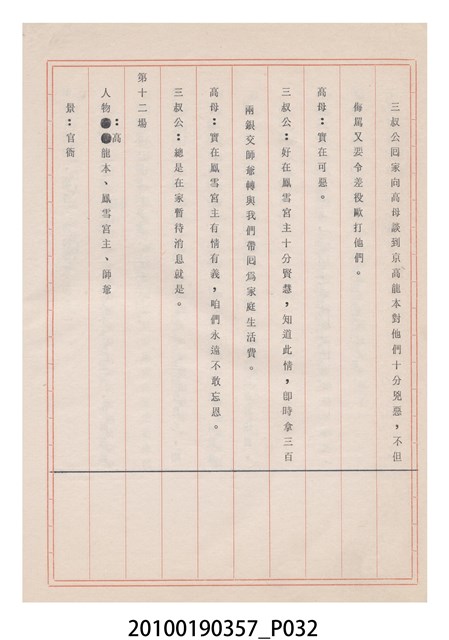 三叔公囘家向高母談到京高龍本對他們十分兇惡，不但
侮罵又要令差役毆打他們。
高母：實在可惡。
三叔公：好在鳳雪宮主十分賢慧，知道此情，卽時拿三百
兩銀交師爺轉與我們帶囘爲家庭生活費。
高母：實在鳳雪宮主有情有義，咱們永遠不敢忘恩。
三叔公：總是在家暫待消息就是。
第十二場
人物：高龍本、鳳雪宮主、師爺
景：官衙
20100190357_P032